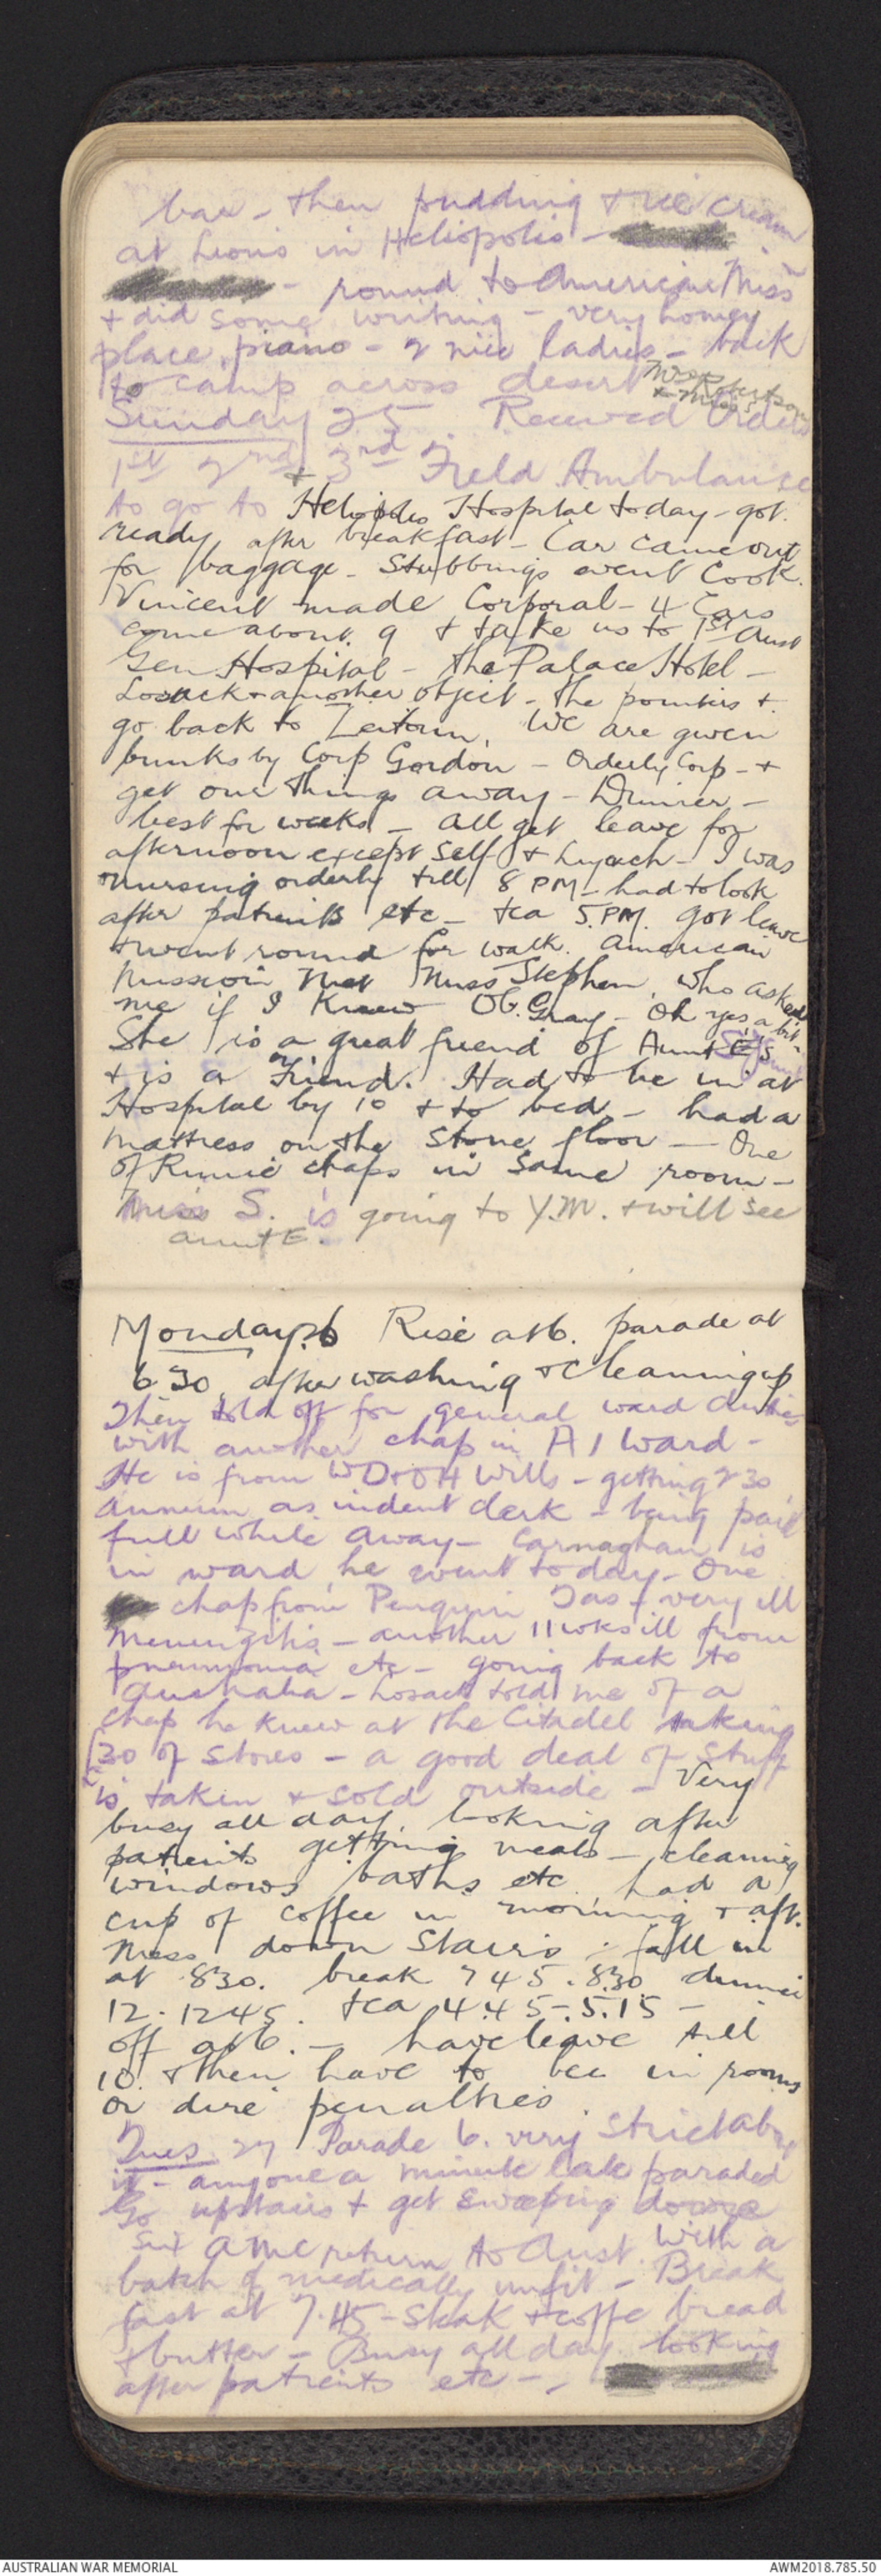 bar - then pudding + ice cream
at Lions in Heliopolis -
- round to American Miss
+ did some writing - very homey
place, piano - 2 nice ladies - back
to camp across desert Mrs Robertson
+ Miss
Sunday 25. Received Orders
1st 2nd + 3rd Field Ambulance
to go to Heliopolis Hospital today - got
ready after breakfast - Car came out
for baggage - Stubbings went Cook.
Vincent made Corporal - 4 Cars
come about 9 + take us to 1st Aust
Gen Hospital - the Palace Hotel -
Losack + another object - the pointers +
go back to Zeitoun. We are given
bunks by Corp Gordon - Orderly Corp - +
get our things away - Dinner -
best for weeks - all get leave for
afternoon except self + - I was
nursing orderly till 8 PM - had to look
after patients etc - tea 5.PM. got leave
+ went round for walk. American
Mission met Miss Stephen, who asked
me if I knew Ob. Gray - Oh yes a bit -
She is a great friend of Aunt E's
+ is a Friend. Had to be in at
Hospital by 10 + to bed - had a
mattress on the stone floor - One
of chaps in same room -
Miss S. is going to Y.M. + will see
aunt E.
Monday 26 Rise at 6. parade at
6 30, after washing + cleaning up
Then told off for general ward duties
with another chap in A 1 Ward -
He is from W D + H O Wills - getting 230
annum as indent clerk - being paid
full while away - Carnaghan is
in ward, he went today - One
chap from Penguin Tas - very ill
Meningitis - another 11 wks ill from
pneumonia etc - going back to
Australia - Losack told me of a
chap he knew at the Citadel taking
£30 of stores - a good deal of stuff
is taken + sold outside - Very
busy all day, looking after
patients getting meals - cleaning
windows, baths etc, had a
cup of coffee in morning + aft.
Mess down stairs : fall in
at 830. break 745 . 830 dinner
12 - 1245. tea 4.45 - 5.15 -
off at 6. - have leave till
10. + then have to be in rooms
or dire penalties.
Tues 27 Parade 6. very strict about
it - anyone a minute late paraded
Go upstairs + get sweeping done
Six AMC return to Aust. with a
batch of medically unfit - Break
fast at 7.45 - Steak + coffe bread
+ butter - Busy all day looking
after patients etc -
AUSTRALIAN WAR MEMORIAL
AWM2018.785.50